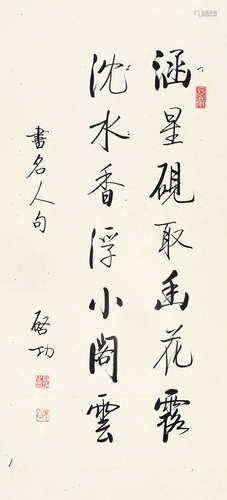 涵星硯取幽花露
沈水香浮小閣雲
書名人句
啓功